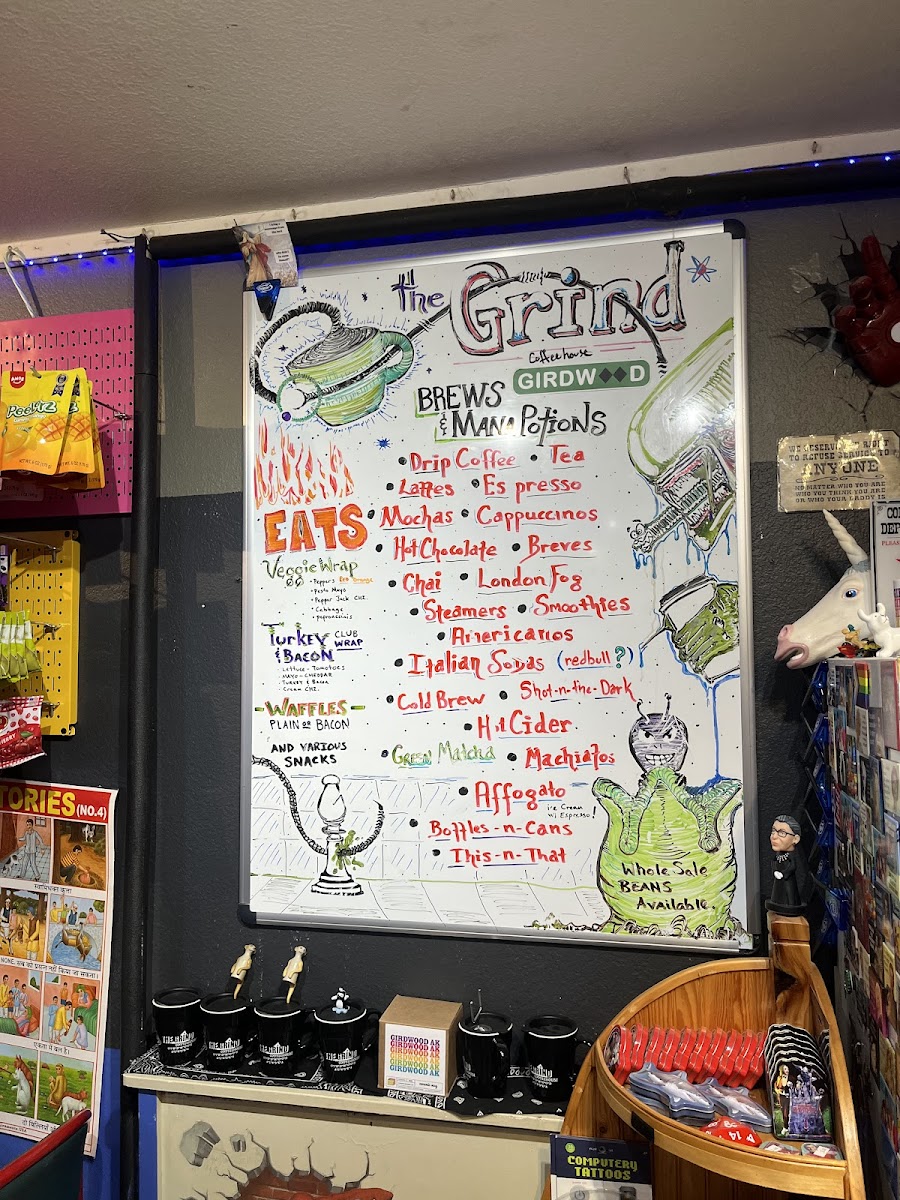 the Grind
Coffee house
GIRDWOOD
BREWS
& MANA POTIONS
• Drip Coffee • Tea
• Lattes • Espresso
• Mochas • Cappuccinos
• Hot Chocolate • Breves
• Chai • London Fog
• Steamers • Smoothies
• Americanos
• Italian Sodas (redbull?)
• Cold Brew • Shot-n-the-Dark
• Hot Cider
• Green Matcha • Machiatos
• Affogato
ice Cream
w/ Espresso!
• Bottles-n-Cans
• This-n-That
EATS
Veggie Wrap
• Peppers
• Pesto Mayo
• Pepper Jack CHZ.
• Cabbage
Turkey CLUB
& BACON WRAP
- Lettuce - Tomatoes
MAYO - CHEDDAR
- Turkey & Bacon
- Cream CHZ.
- WAFFLES -
PLAIN OR BACON
AND VARIOUS
SNACKS
Whole Sale
BEANS
Available.
WE RESERVE THE RIGHT
TO REFUSE SERVICE TO
ANYONE
NO MATTER WHO YOU ARE
WHO YOU THINK YOU ARE
OR WHO YOUR DADDY IS
TORIES (NO.4)
GIRDWOOD AK
GIRDWOOD AK
GIRDWOOD AK
GIRDWOOD AK
GIRDWOOD AK
COMPUTERY
TATTOOS